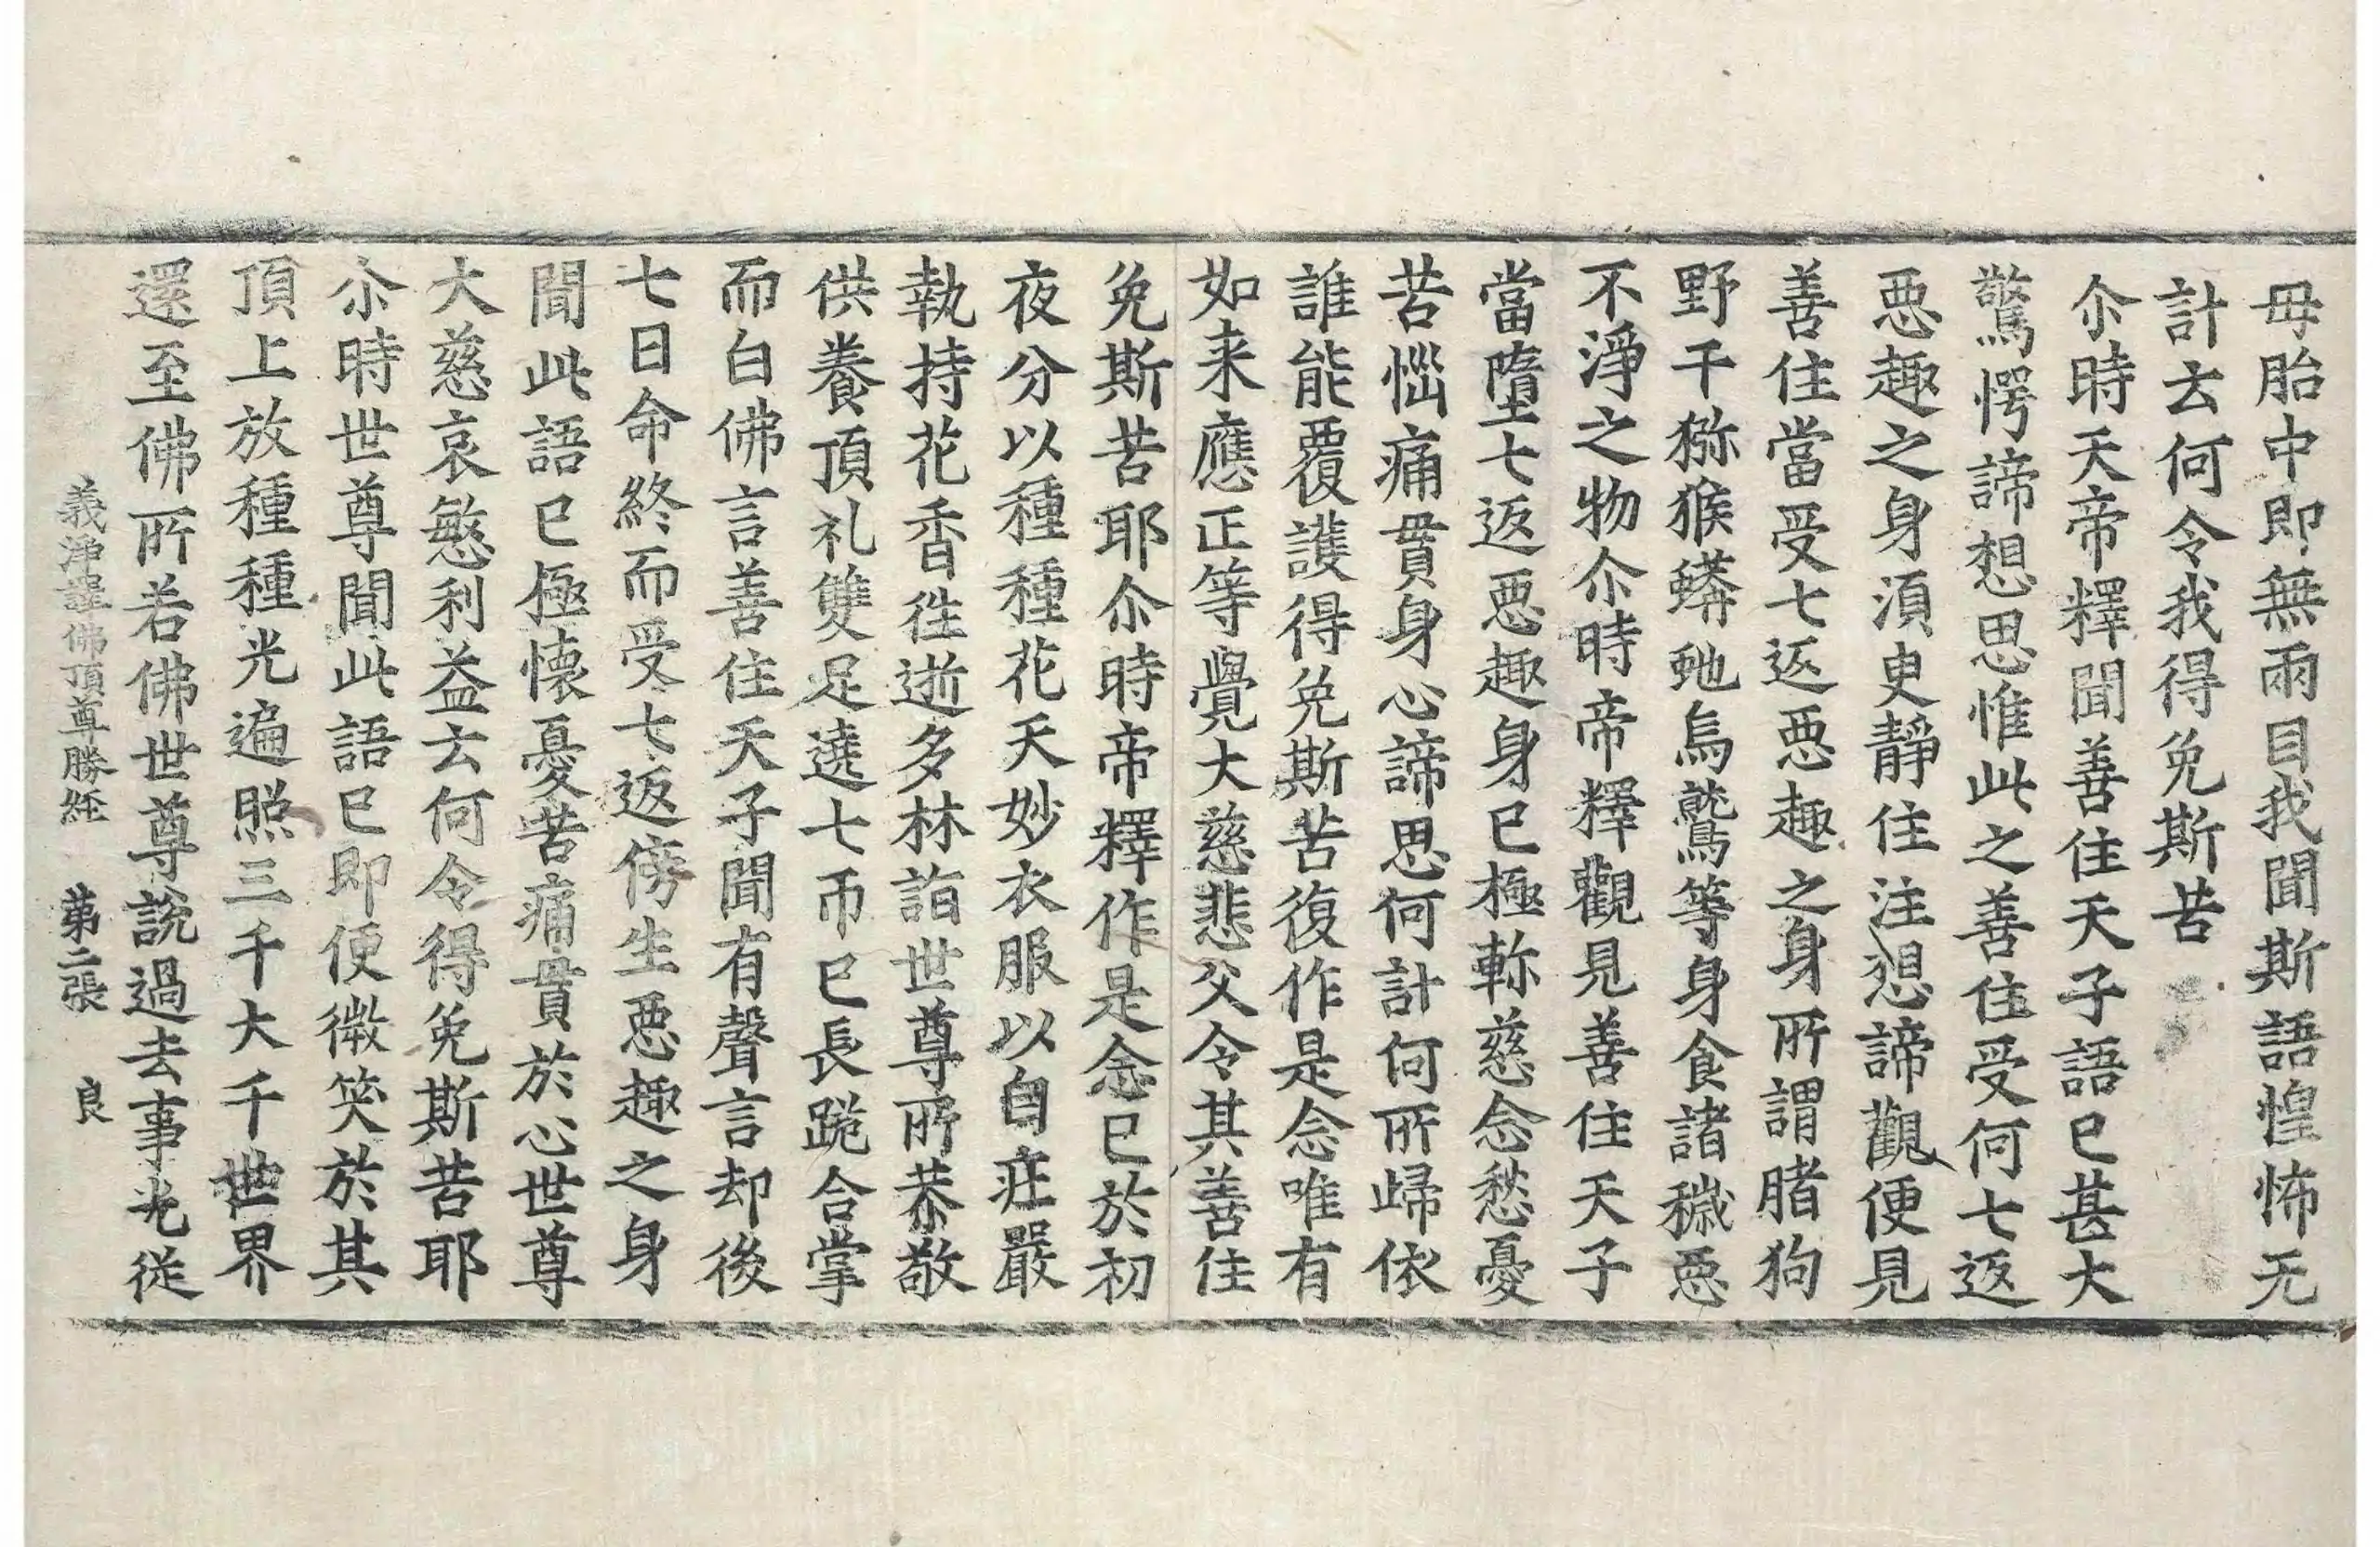 母胎中即無兩目我聞斯語惶怖无
計云何令我得免斯苦
尒時天帝釋聞善住天子語已甚大
驚愕諦想思惟此之善住受何七返
惡趣之身湏臾靜住注想諦觀便見
善住當受七返惡趣之身所謂猪狗
野干猕猴蟒虵烏鷲等身食諸穢惡
不淨之物尒時帝釋觀見善住天子
當墮七返惡趣身已極軫慈念愁憂
苦惱痛貫身心諦思何計何所歸依
誰能覆護得免斯苦復作是念唯有
如来應正等覺大慈悲父令其善住
免斯苦耶尒時帝釋作是念已於初
夜分以種種花天妙衣服以自庄嚴
執持花香徃逝多林詣世尊所恭敬
供養頂礼雙足遶七帀已長跪合掌
而白佛言善住天子聞有聲言却後
七日命終而受七返傍生惡趣之身
聞此語已極懷憂苦痛貫於心世尊
大慈哀愍利益云何令得免斯苦耶
尒時世尊聞此語已即便微笑於其
頂上放種種光遍照三千大千世界
還至佛所若佛世尊說過去事光從
義淨譯佛頂尊勝經　第二張　良